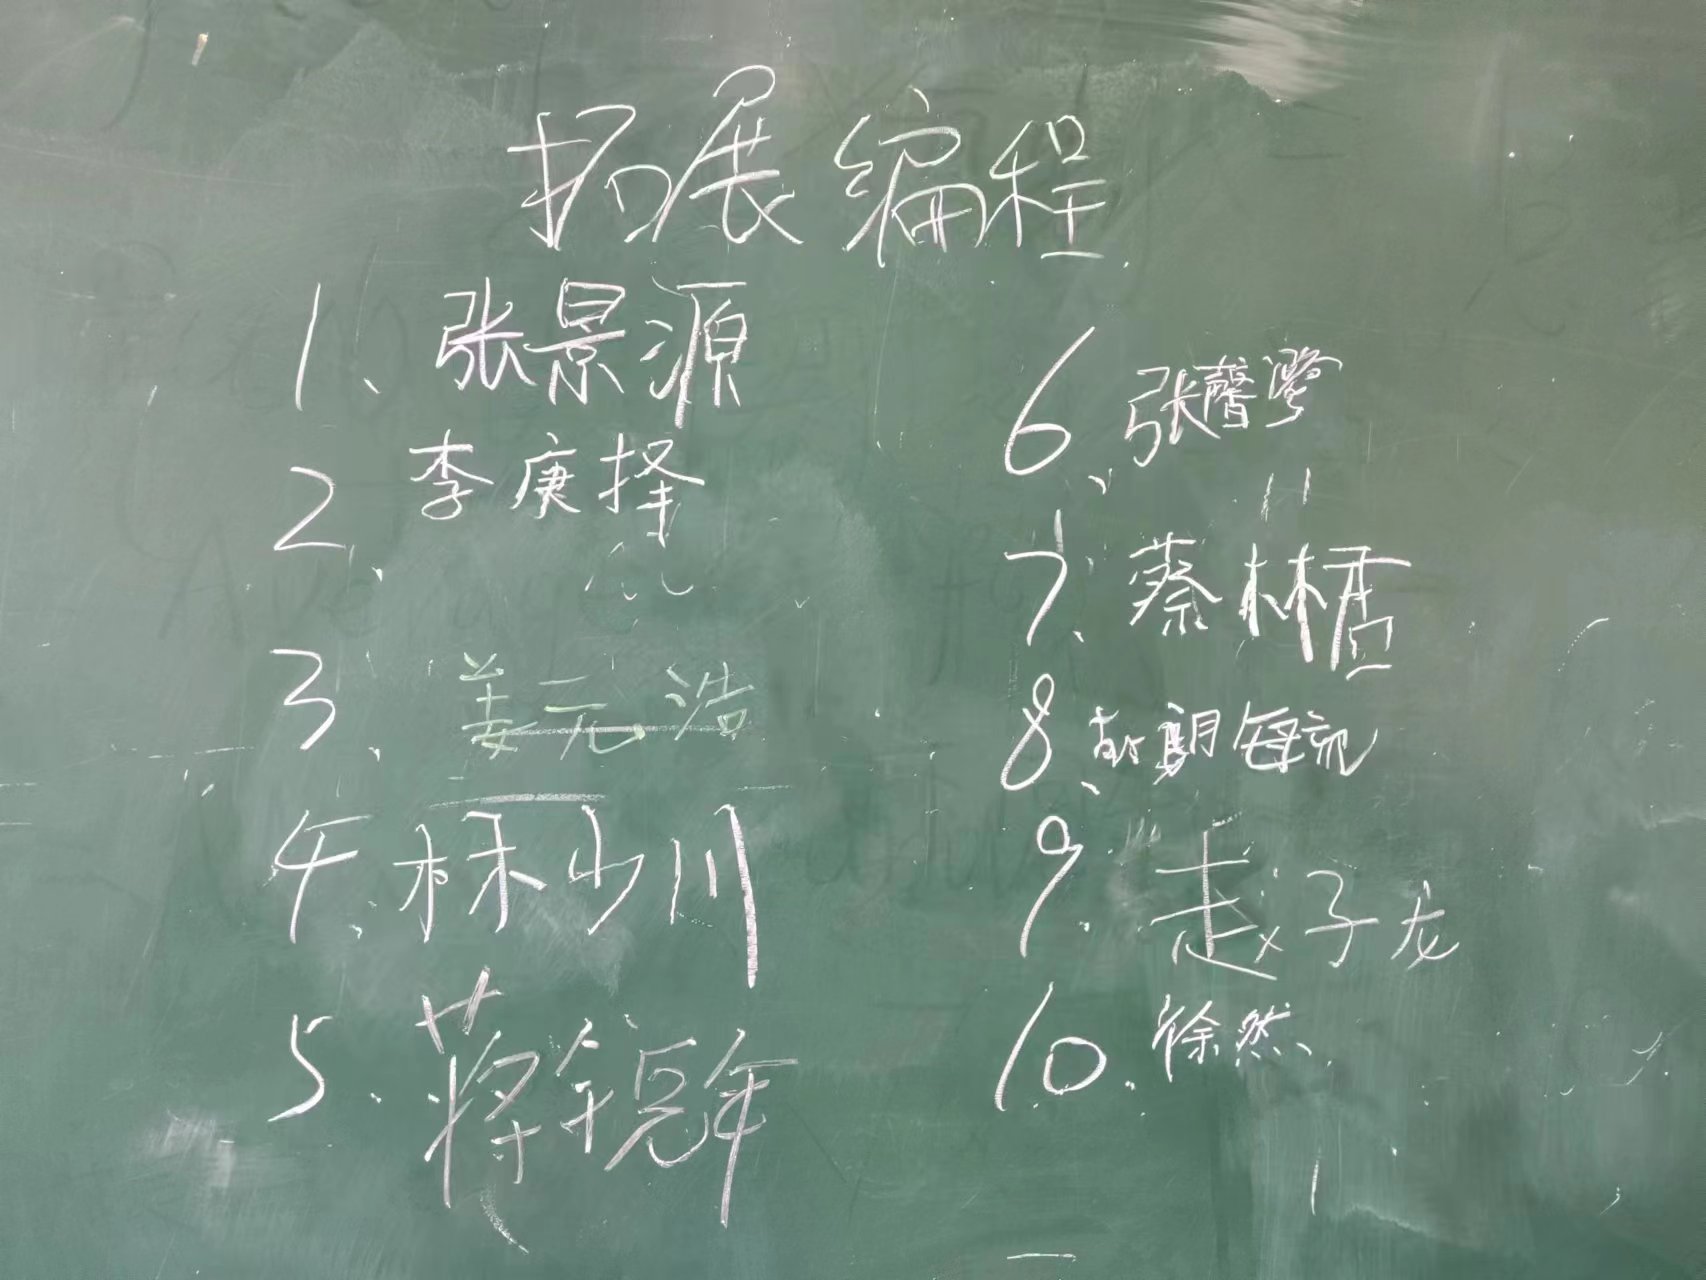 拓展编程
1、张景源
2、李庚择
3、姜元浩
4、林少川
5、蒋锐年
6、张馨滢
7、蔡林杏
8、
9、赵子龙
10、徐然